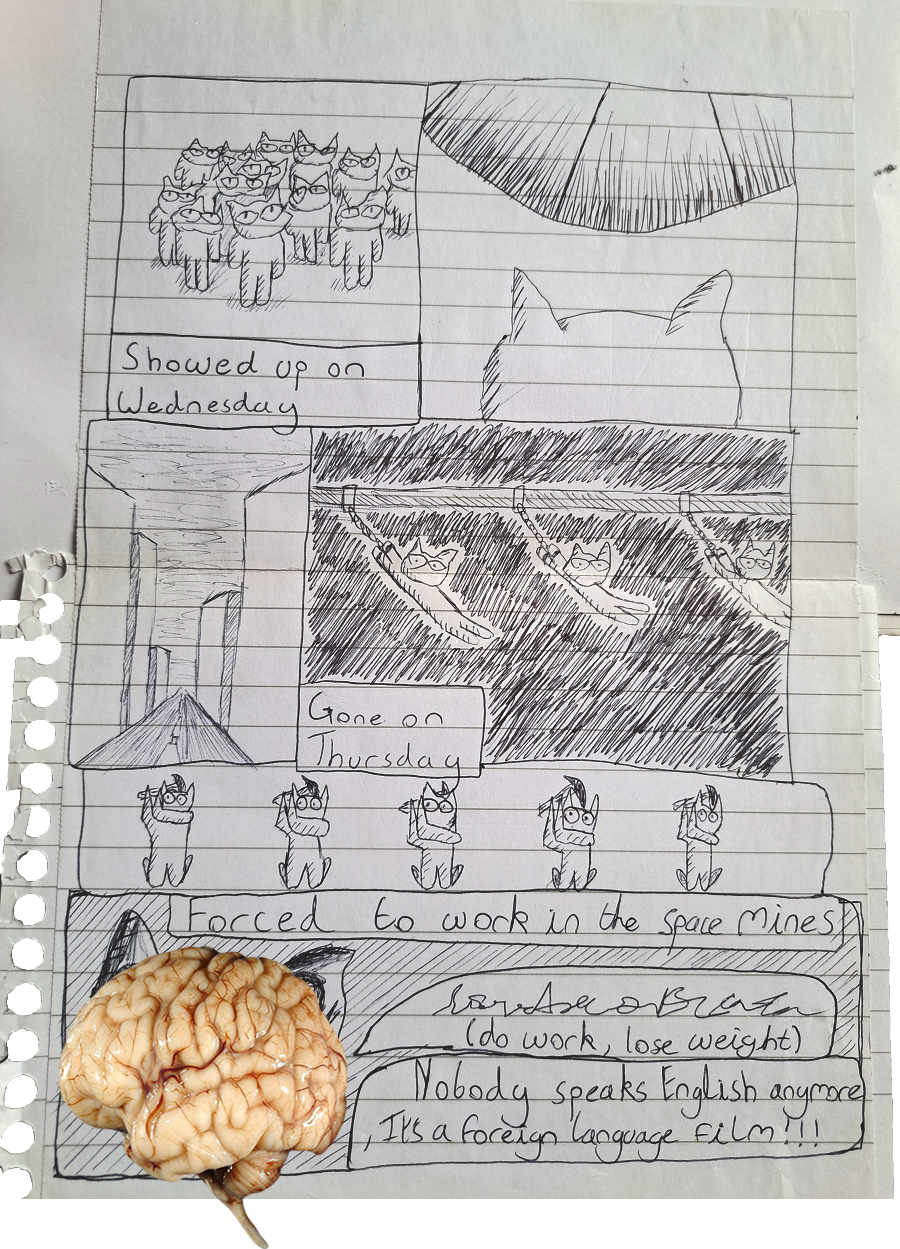 Showed up on
Wednesday
Gone on
Thursday
Forced to work in the space Mines
(do work, lose weight)
Nobody speaks English anymore
, It's a foreign language film!!!